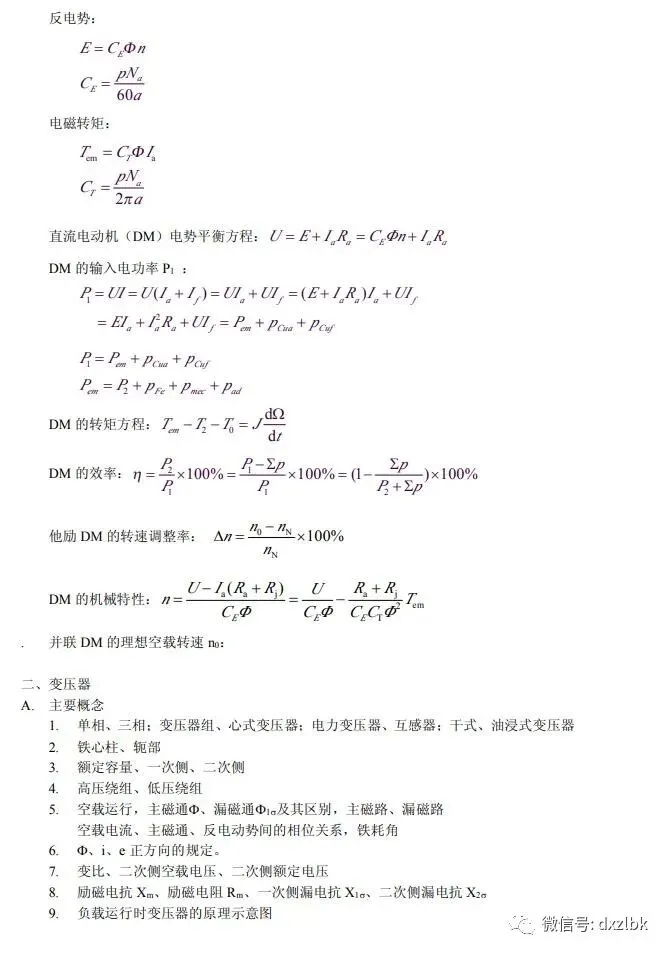 反电势：
E = C_EΦn
C_E = pN_a / 60a
电磁转矩：
T_em = C_TΦI_a
C_T = pN_a / 2πa
直流电动机（DM）电势平衡方程：U = E + I_aR_a = C_EΦn + I_aR_a
DM 的输入电功率 P₁ ：
P₁ = UI = U(I_a + I_f) = UI_a + UI_f = (E + I_aR_a)I_a + UI_f
= EI_a + I_a²R_a + UI_f = P_em + p_Cua + p_Cuf
P₁ = P_em + p_Cua + p_Cuf
P_em = P₂ + p_Fe + p_mec + p_ad
DM 的转矩方程：T_em − T₂ − T₀ = J dΩ/dt
DM 的效率：η = P₂/P₁ ×100% = (P₁ − Σp)/P₁ ×100% = (1 − Σp/(P₂ + Σp)) ×100%
他励 DM 的转速调整率： Δn = (n₀ − n_N)/n_N ×100%
DM 的机械特性：n = (U − I_a(R_a + R_j))/(C_EΦ) = U/(C_EΦ) − (R_a + R_j)/(C_EC_TΦ²) T_em
. 并联 DM 的理想空载转速 n₀：
二、变压器
A. 主要概念
1. 单相、三相；变压器组、心式变压器；电力变压器、互感器；干式、油浸式变压器
2. 铁心柱、轭部
3. 额定容量、一次侧、二次侧
4. 高压绕组、低压绕组
5. 空载运行，主磁通Φ、漏磁通Φ₁σ及其区别，主磁路、漏磁路
空载电流、主磁通、反电动势间的相位关系，铁耗角
6. Φ、i、e 正方向的规定。
7. 变比、二次侧空载电压、二次侧额定电压
8. 励磁电抗 Xₘ、励磁电阻 Rₘ、一次侧漏电抗 X₁σ、二次侧漏电抗 X₂σ
9. 负载运行时变压器的原理示意图
微信号: dxzlbk